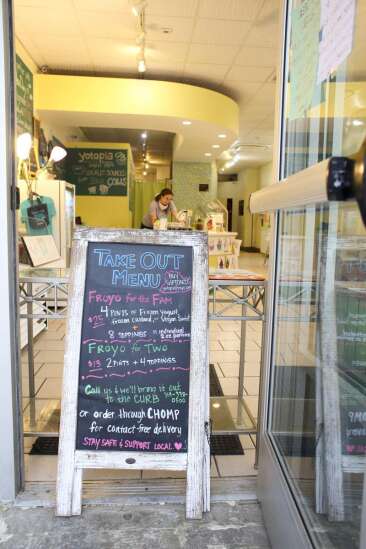 yotopia
TAKE OUT
MENU
FROYO for the FAM
$25
4 PINTS OF Frozen Yogurt,
frozen custard, or Vegan Sorbet
+
8 TOPPINGS in individual
8 oz portions
FROYO for TWO
$13 2 PINTS + 4 TOPPINGS
Call us & we'll bring it out
to the CURB
or order through CHOMP
for contact-free delivery
STAY SAFE & SUPPORT LOCAL
LOCAL
COWS